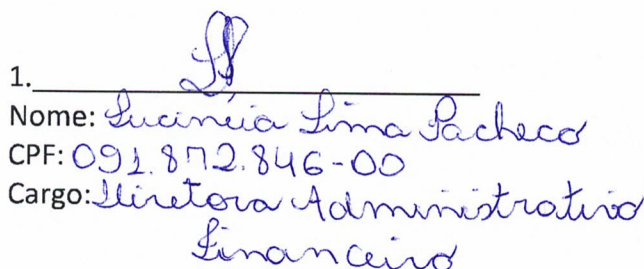 1.
Nome: Lucinéia Lima Pacheco
CPF: 091.872.846-00
Cargo: Diretora Administrativo
Financeiro